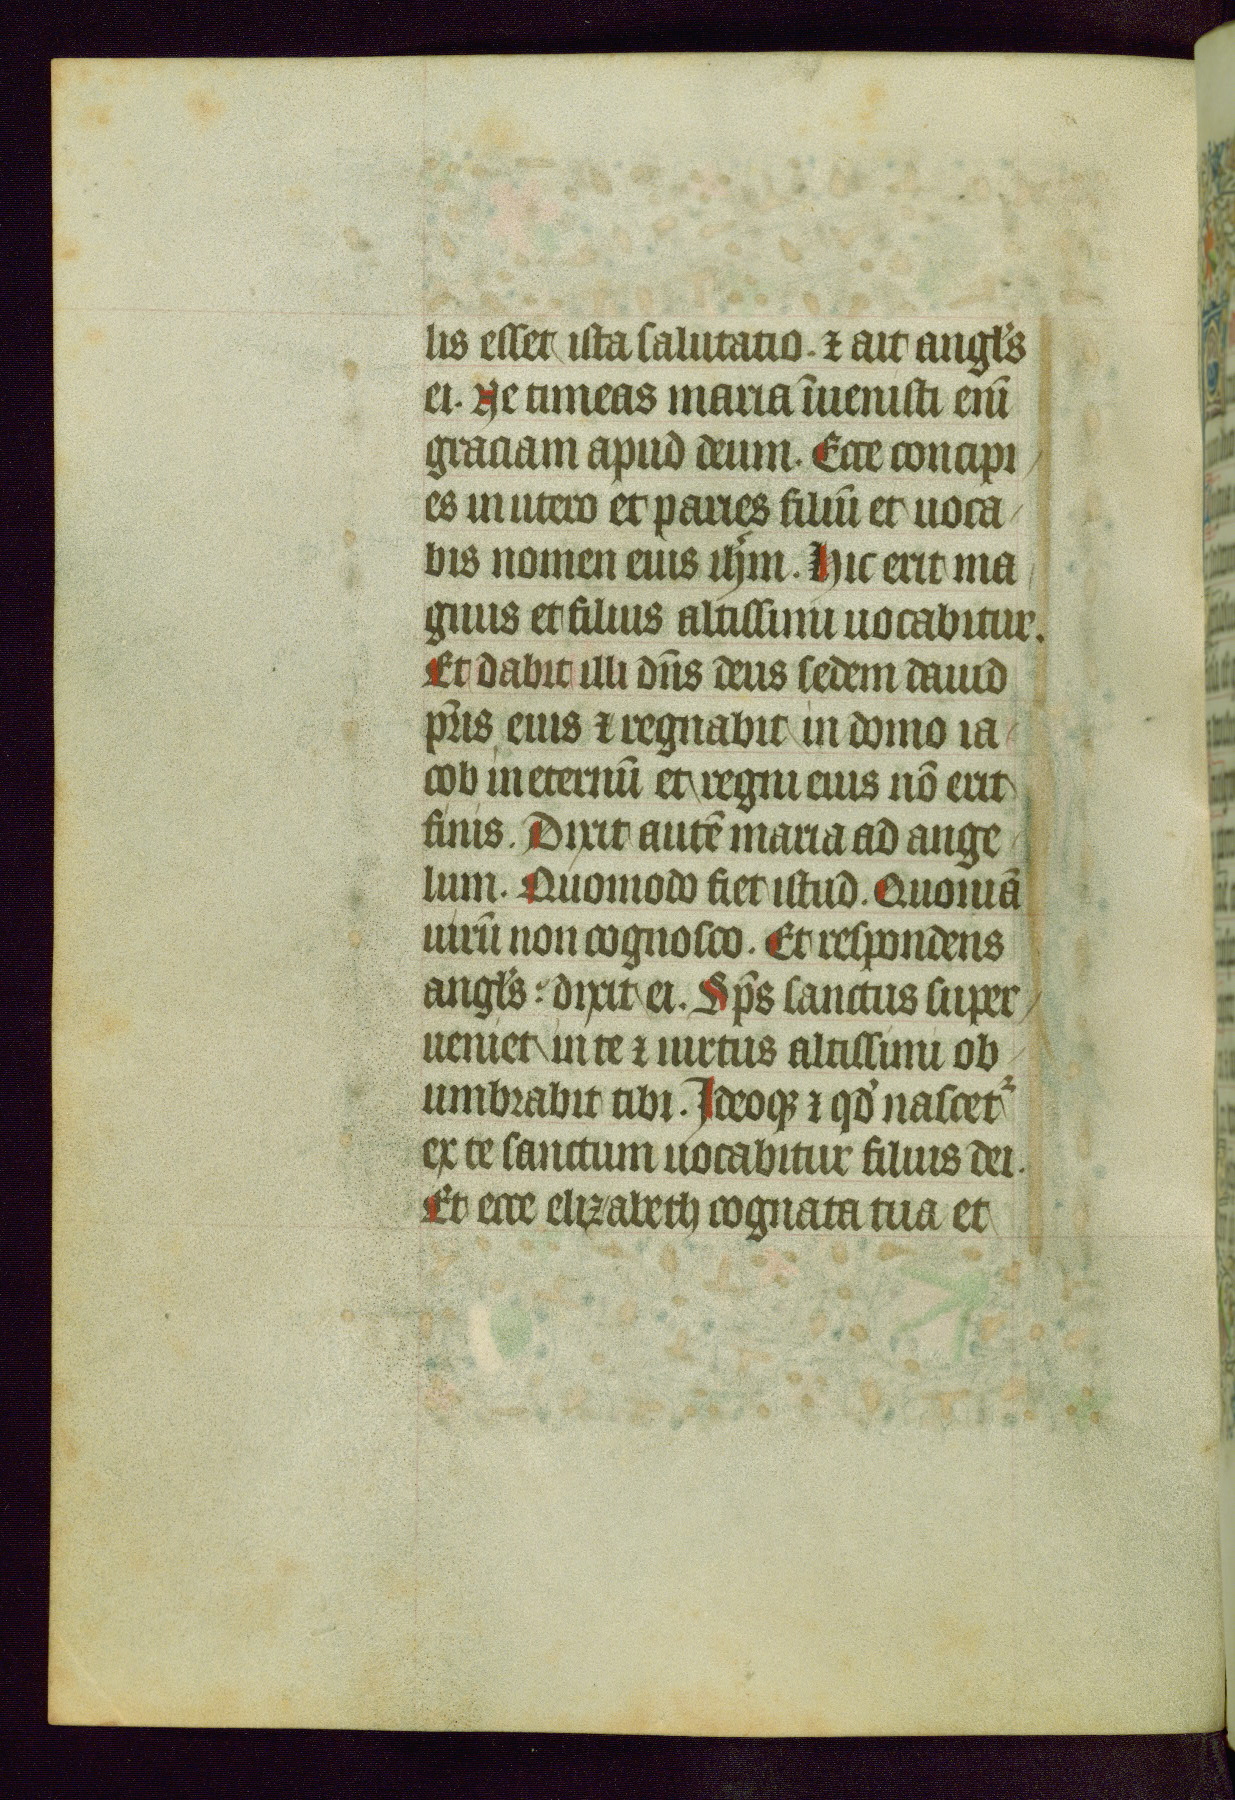 lis esset ista salutatio. ⁊ ait angl's
ei. Ne timeas maria īuenisti enī
graciam apud deum. Ecce concipi
es in utero et paries filiū et uoca
bis nomen eius ihm̄. Hic erit ma
gnus et filius altissimi uocabitur.
Et dabit illi dn̄s deus sedem dauid
pr̄is eius ⁊ regnabit in domo ia
cob in eternū et regni eius nō erit
finis. Dixit autē maria ad ange
lum. Quomodo fiet istud. Quoniā
uirū non cognosco. Et respondens
angl's : dixit ei. Sp̄s sanctus super
ueniet in te ⁊ uirtus altissimi ob
umbrabit tibi. Ideoqꝫ ⁊ qd' nascet᷑
ex te sanctum uocabitur filius dei.
Et ecce elizabeth cognata tua et